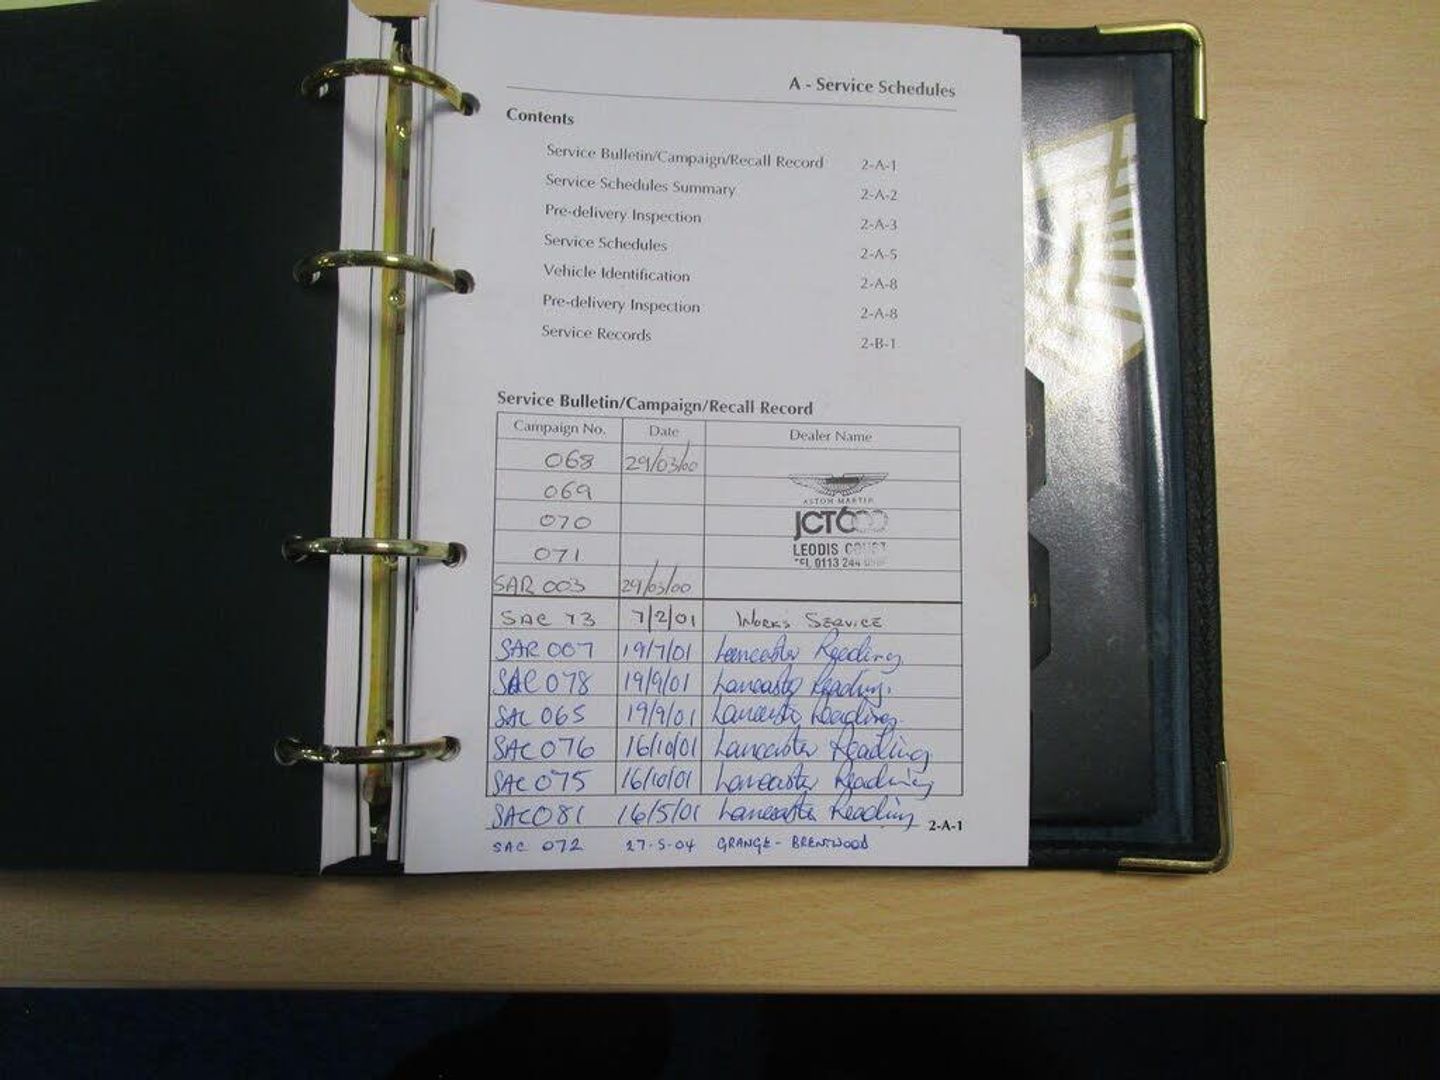 A - Service Schedules
Contents
Service Bulletin/Campaign/Recall Record 2-A-1
Service Schedules Summary 2-A-2
Pre-delivery Inspection 2-A-3
Service Schedules 2-A-5
Vehicle Identification 2-A-8
Pre-delivery Inspection 2-A-8
Service Records 2-B-1
Service Bulletin/Campaign/Recall Record
Campaign No. Date Dealer Name
068 29/03/00
069
ASTON MARTIN
070 JCT600
071 LEODIS COURT
TEL 0113 244
SAR 003 29/03/00
SAC 73 7/2/01 WORKS SERVICE
SAR 007 19/7/01 Lancaster Reading
SAC 078 19/9/01 Lancaster Reading.
SAC 065 19/9/01 Lancaster Reading
SAC 076 16/10/01 Lancaster Reading
SAC 075 16/10/01 Lancaster Reading
SAC 081 16/5/01 Lancaster Reading
2-A-1
SAC 072 27-5-04 GRANGE - BRENTWOOD
3
4